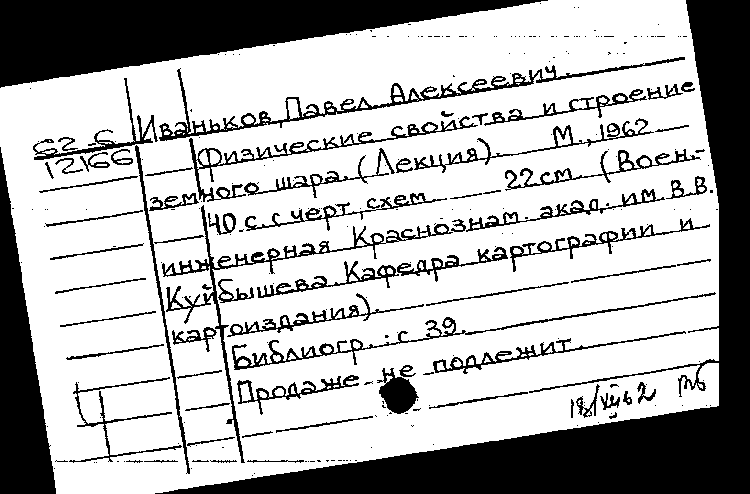 Иваньков, Павел Алексеевич.
62-5
12166
Физические свойства и строение
земного шара. (Лекция). М., 1962
40 с. с черт., схем. 22 см. (Воен.-
инженерная Краснознам. акад. им. В.В.
Куйбышева. Кафедра картографии и
картоиздания).
Библиогр.: с 39.
Продаже не подлежит.
18/XII 62